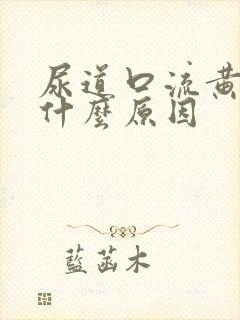 尿道口流黄
什麼原因
藍菡木